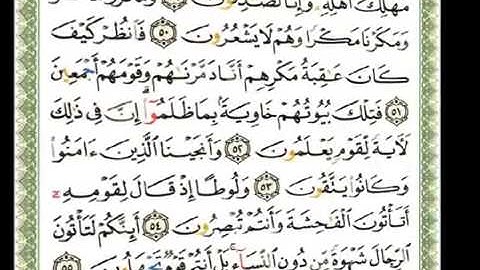 مَهْلِكَ أَهْلِهِۦ وَإِنَّا لَصَٰدِقُونَ ٤٩ وَمَكَرُوا۟
وَمَكَرْنَا مَكْرًا وَهُمْ لَا يَشْعُرُونَ ٥٠ فَٱنظُرْ كَيْفَ
كَانَ عَٰقِبَةُ مَكْرِهِمْ أَنَّا دَمَّرْنَٰهُمْ وَقَوْمَهُمْ أَجْمَعِينَ
٥١ فَتِلْكَ بُيُوتُهُمْ خَاوِيَةًۢ بِمَا ظَلَمُوٓا۟ ۗ إِنَّ فِى ذَٰلِكَ
لَءَايَةً لِّقَوْمٍ يَعْلَمُونَ ٥٢ وَأَنجَيْنَا ٱلَّذِينَ ءَامَنُوا۟
وَكَانُوا۟ يَتَّقُونَ ٥٣ وَلُوطًا إِذْ قَالَ لِقَوْمِهِۦٓ
أَتَأْتُونَ ٱلْفَٰحِشَةَ وَأَنتُمْ تُبْصِرُونَ ٥٤ أَئِنَّكُمْ لَتَأْتُونَ
ٱلرِّجَالَ شَهْوَةً مِّن دُونِ ٱلنِّسَآءِ ۚ بَلْ أَنتُمْ قَوْمٌ تَجْهَلُونَ ٥٥